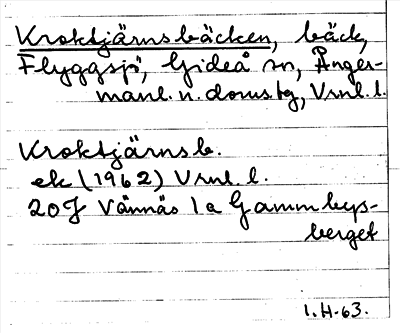 Kroktjärnsbäcken, bäck,
Flyggsjö, Gideå sn, Ånger-
manl. n. doms tg, Vrnl. l.
Kroktjärnsb.
ek (1962) Vrnl. l.
20J Vännäs 1a Gammbys-
berget
1.H-63.